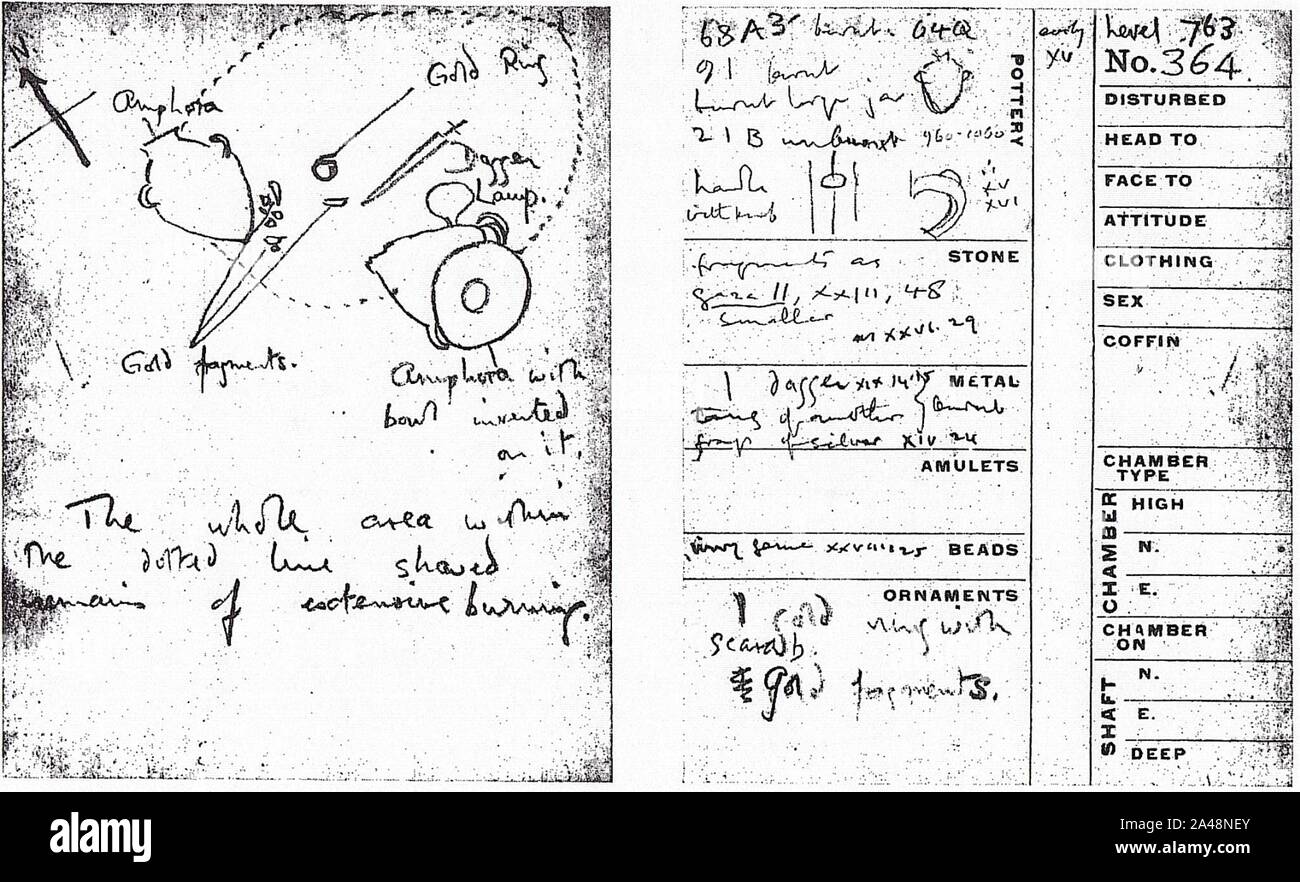 N.
Gold Ring
Amphora
Dagger
Lamp.
Gold fragments.
Amphora with
bowl inverted
on it.
The whole area within
the dotted line showed
remains of extensive burning.
68A3 burnt. 64Q
91 burnt
burnt large jar
21B unburnt 960-1060
handle
with knob
XV
XVI
POTTERY
early
XV
STONE
fragments as
gaza II, XXIII, 48
smaller
XXVI. 29
METAL
1 dagger XIX 14
tang of another burnt
frags of silver XIV 24
AMULETS
BEADS
ORNAMENTS
1 gold ring with
scarab.
gold fragments.
Level 763
No. 364
DISTURBED
HEAD TO
FACE TO
ATTITUDE
CLOTHING
SEX
COFFIN
CHAMBER
TYPE
CHAMBER
HIGH
N.
E.
CHAMBER
ON
SHAFT
N.
E.
DEEP
alamy
Image ID: 2A48NEY
www.alamy.com